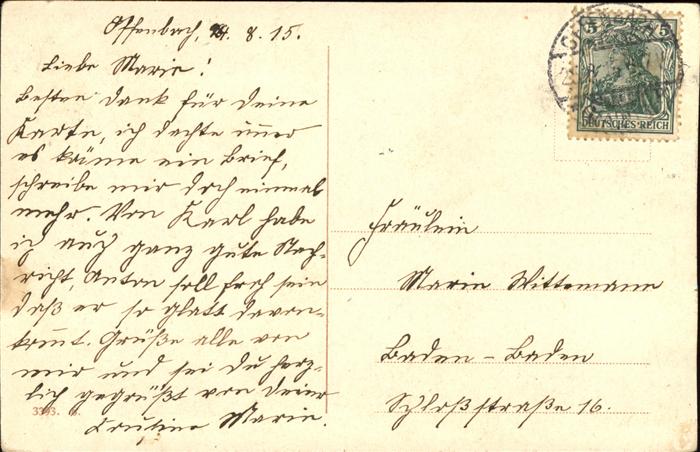 Offenbach, 24. 8. 15.
Liebe Marie!
Besten Dank für Deine
Karte, ich dachte immer
es käme ein Brief,
schreibe mir doch einmal
mehr. Von Karl habe
ich auch ganz gute Nach-
richt, Anton soll froh sein
daß er so glatt davon-
kommt. Grüße alle von
mir und sei Du herz-
lich gegrüßt von Deiner
Cousine Marie.
3393.
5 5
DEUTSCHES REICH
Fräulein
Marie Wittemann
Baden-Baden
Schloßstraße 16.